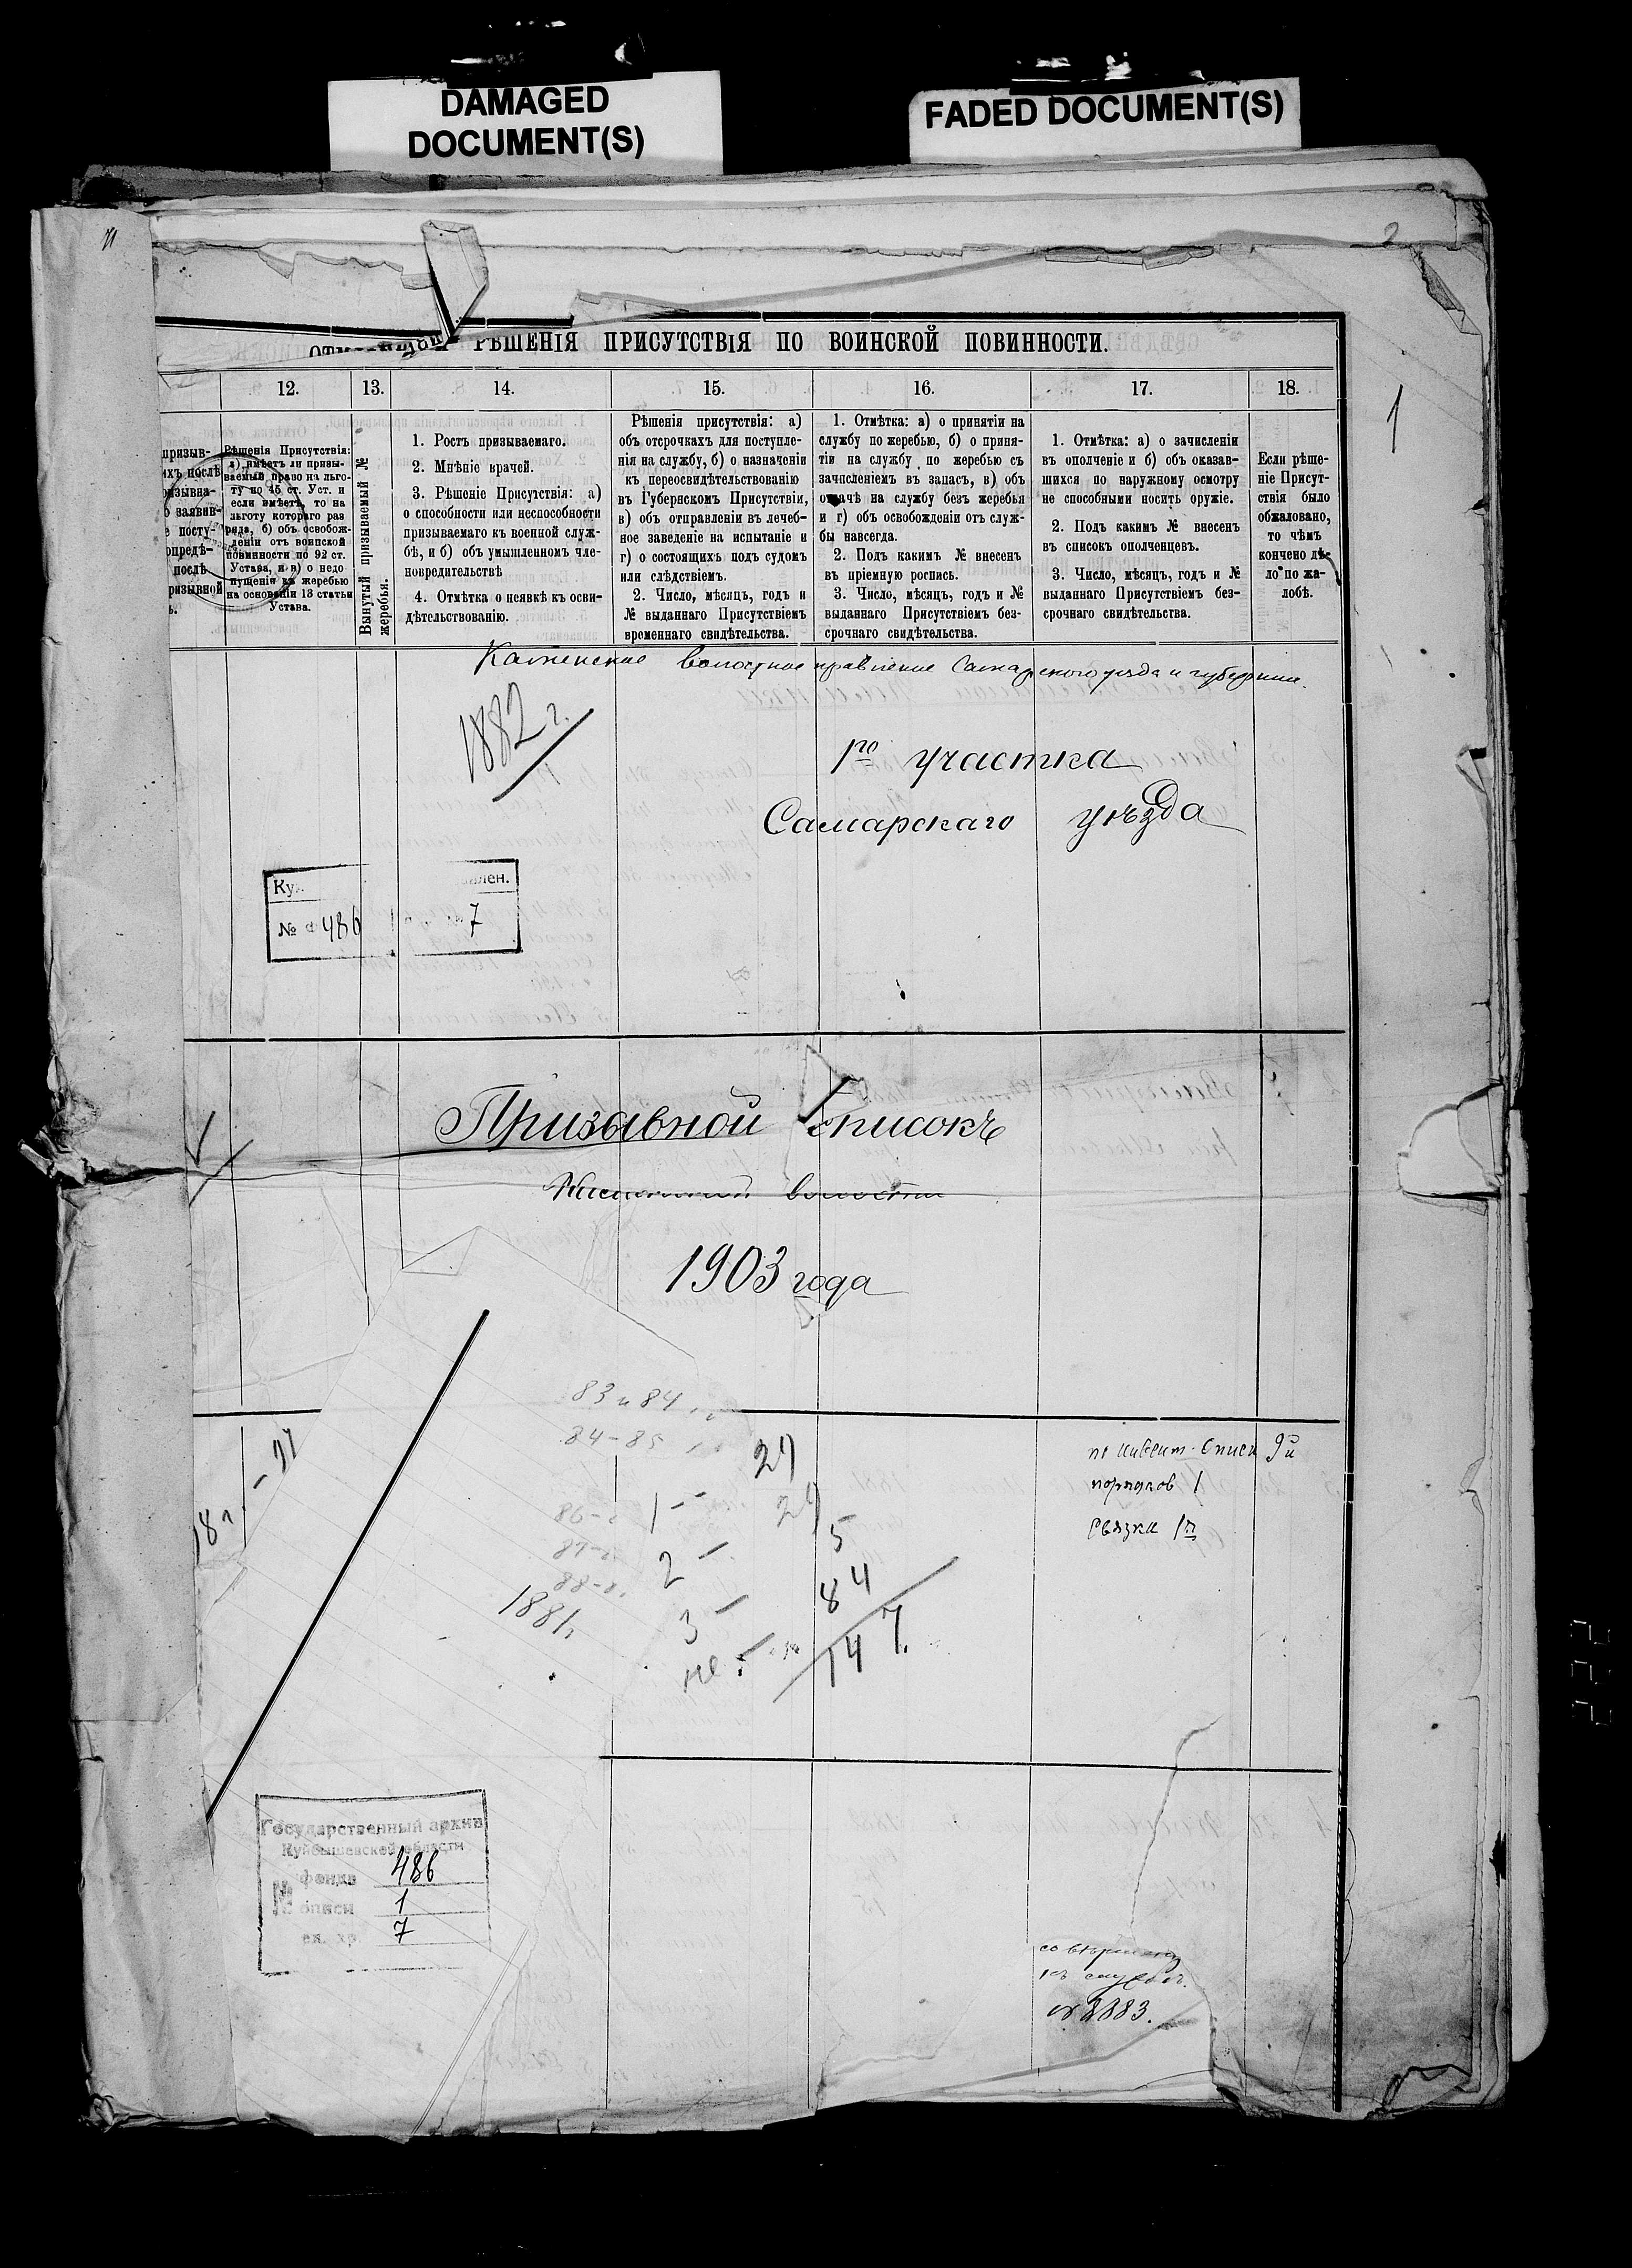 DAMAGED
DOCUMENT(S)
FADED DOCUMENT(S)
2
1
РѢШЕНІЯ ПРИСУТСТВІЯ ПО ВОИНСКОЙ ПОВИННОСТИ.
12. 13. 14. 15. 16. 17. 18.
Рѣшенія Присутствія:
а) имѣетъ ли призы-
ваемый право на льго-
ту по 45 ст. Уст. и
если имѣетъ, то на
льготу котораго раз
ряда, б) объ освобож-
деніи отъ воинской
повинности по 92 ст.
Устава, и в) о недо
пущеніи къ жеребью
на основаніи 13 статьи
Устава.
Вынутый призываемый №
жеребья.
1. Ростъ призываемаго.
2. Мнѣніе врачей.
3. Рѣшеніе Присутствія: а)
о способности или неспособности
призываемаго къ военной служ-
бѣ, и б) объ умышленномъ чле-
новредительствѣ
4. Отмѣтка о неявкѣ къ осви-
дѣтельствованію.
Рѣшенія присутствія: а)
объ отсрочкахъ для поступле-
нія на службу, б) о назначеніи
къ переосвидѣтельствованію
въ Губернскомъ Присутствіи,
в) объ отправленіи въ лечеб-
ное заведеніе на испытаніе и
г) о состоящихъ подъ судомъ
или слѣдствіемъ.
2. Число, мѣсяцъ, годъ и
№ выданнаго Присутствіемъ
временнаго свидѣтельства.
1. Отмѣтка: а) о принятіи на
службу по жеребью, б) о приня-
тіи на службу по жеребью съ
зачисленіемъ въ запасъ, в) объ
отдачѣ на службу безъ жеребья
и г) объ освобожденіи отъ служ-
бы навсегда.
2. Подъ какимъ № внесенъ
въ пріемную роспись.
3. Число, мѣсяцъ, годъ и №
выданнаго Присутствіемъ без-
срочнаго свидѣтельства.
1. Отмѣтка: а) о зачисленіи
въ ополченіе и б) объ оказав-
шихся по наружному осмотру
не способными носить оружіе.
2. Подъ какимъ № внесенъ
въ списокъ ополченцевъ.
3. Число, мѣсяцъ, годъ и №
выданнаго Присутствіемъ без-
срочнаго свидѣтельства.
Если рѣше-
ніе Присут-
ствія было
обжаловано,
то чѣмъ
кончено дѣ-
ло по жа-
лобѣ.
Каменское волостное правление Самарского уезда и губернии.
1882 г.
1го участка
Самарскаго уѣзда
№ ф 486 7
Призывной списокъ
волости
1903 года
83 и 84
84-85
86-г
87-г.
88-г.
1881г.
29
1 -- 29
2 - 5
3 - 84
не
147.
по Инвент. Описи
порядков 1
Связка
Государственный архив
Куйбышевской области
№ фонда 486
описи 1
ед. хр. 7
1883.